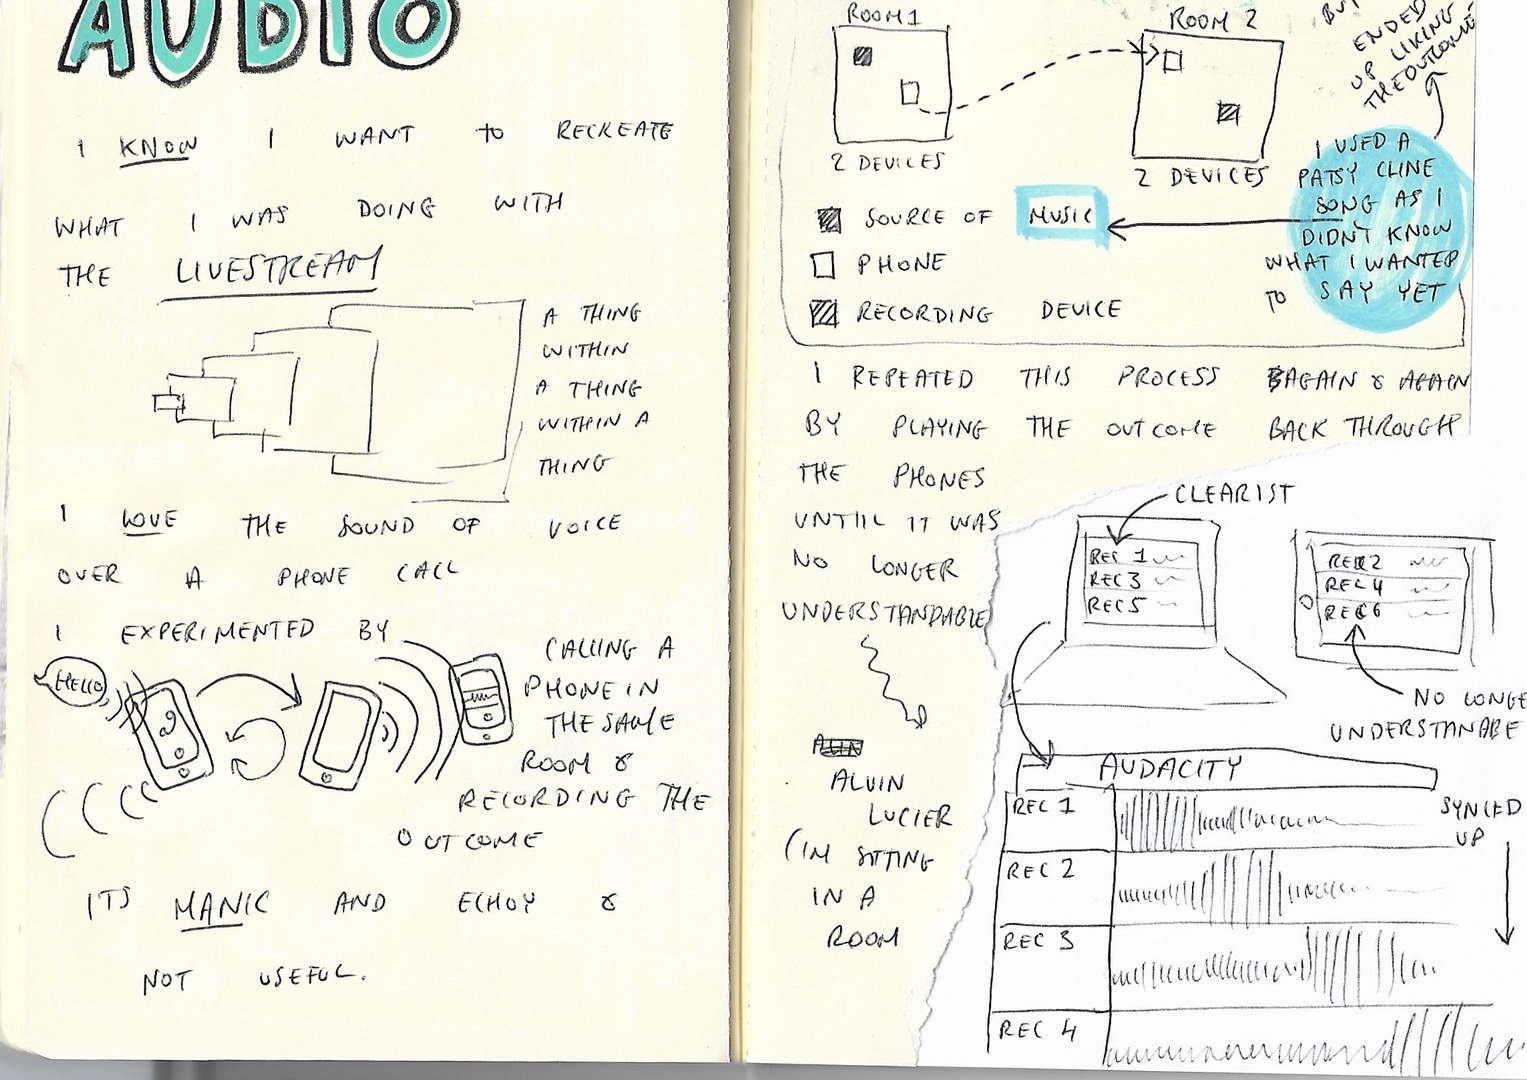 AUDIO
I KNOW I WANT TO RECREATE
WHAT I WAS DOING WITH
THE LIVESTREAM
A THING
WITHIN
A THING
WITHIN A
THING
I LOVE THE SOUND OF VOICE
OVER A PHONE CALL
I EXPERIMENTED BY
HELLO
CALLING A
PHONE IN
THE SAME
ROOM &
RECORDING THE
OUTCOME
ITS MANIC AND ECHOY &
NOT USEFUL.
ROOM 1
ROOM 2
2 DEVICES
2 DEVICES
SOURCE OF MUSIC
PHONE
RECORDING DEVICE
BUT
ENDED
UP LIKING
THE OUTCOME
I USED A
PATSY CLINE
SONG AS I
DIDN'T KNOW
WHAT I WANTED
TO SAY YET
I REPEATED THIS PROCESS AGAIN & AGAIN
BY PLAYING THE OUTCOME BACK THROUGH
THE PHONES
UNTIL IT WAS
NO LONGER
UNDERSTANDABLE
ALVIN
LUCIER
(IM SITTING
IN A
ROOM
CLEARIST
REC 1
REC 3
REC 5
REC 2
REC 4
REC 6
NO LONGE
UNDERSTANABE
AUDACITY
REC 1
REC 2
REC 3
REC 4
SYNCED
UP